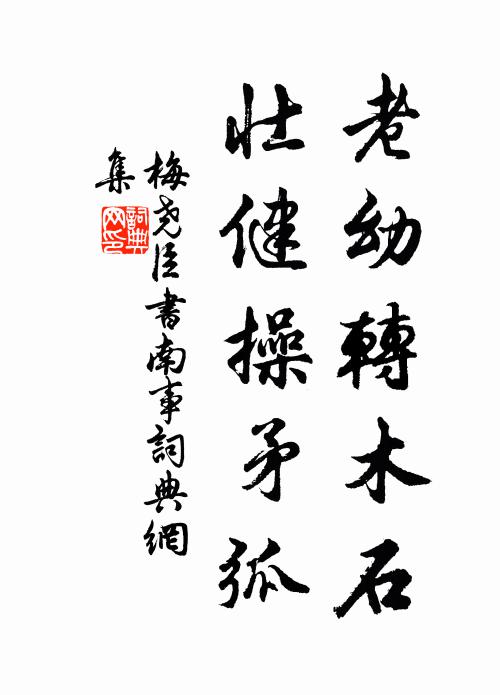 老幼轉木石
壯健操矛弧
梅堯臣書南事詞典網
集
詞典网印